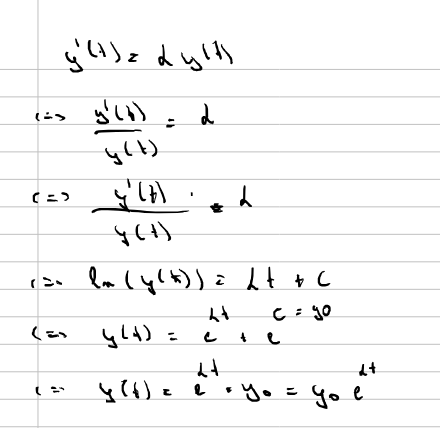 y'(t) = α y(t)
<=> y'(t) / y(t) = α
<=> y'(t) / y(t) = α
<=> ln(y(t)) = αt + C
<=> y(t) = e^{αt} + e^{C = y0}
<=> y(t) = e^{αt} · y0 = y0 e^{αt}